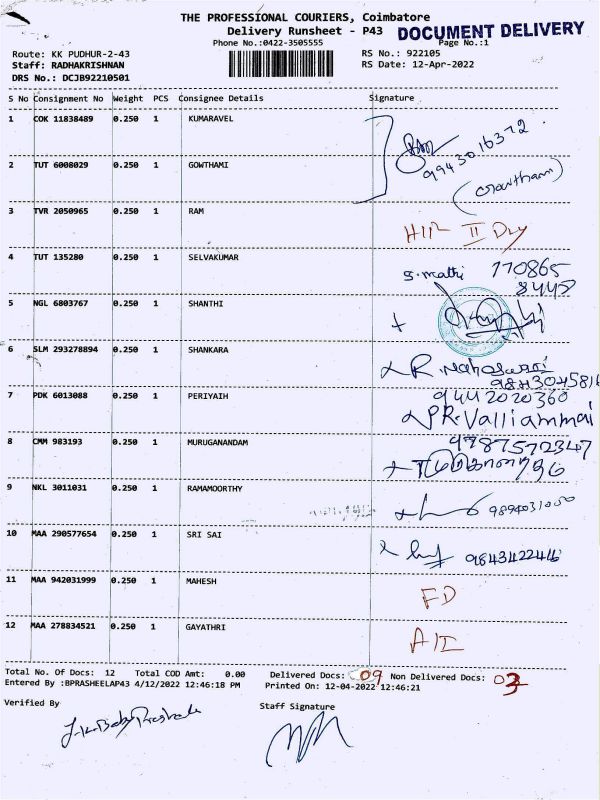 THE PROFESSIONAL COURIERS, Coimbatore
Delivery Runsheet - P43
DOCUMENT DELIVERY
Phone No.:0422-3505555
Page No.:1
Route: KK PUDHUR-2-43
RS No.: 922105
Staff: RADHAKRISHNAN
RS Date: 12-Apr-2022
DRS No.: DCJB92210501
S No Consignment No Weight PCS Consignee Details Signature
1 COK 11838489 0.250 1 KUMARAVEL
9943016372
2 TUT 6008029 0.250 1 GOWTHAMI
(Gowtham)
3 TVR 2050965 0.250 1 RAM
4 TUT 135280 0.250 1 SELVAKUMAR
S.mathi 770865
8445
5 NGL 6803767 0.250 1 SHANTHI
6 SLM 293278894 0.250 1 SHANKARA
9843045816
7 PDK 6013088 0.250 1 PERIYAIH 9442020360
PR.Valliammai
8 CMM 983193 0.250 1 MURUGANANDAM 9787572347
9 NKL 3011031 0.250 1 RAMAMOORTHY
10 MAA 290577654 0.250 1 SRI SAI
9843422446
11 MAA 942031999 0.250 1 MAHESH FD
12 MAA 278834521 0.250 1 GAYATHRI
Total No. Of Docs: 12 Total COD Amt: 0.00 Delivered Docs: 09 Non Delivered Docs: 03
Entered By :BPRASHEELAP43 4/12/2022 12:46:18 PM Printed On: 12-04-2022 12:46:21
Verified By
Staff Signature